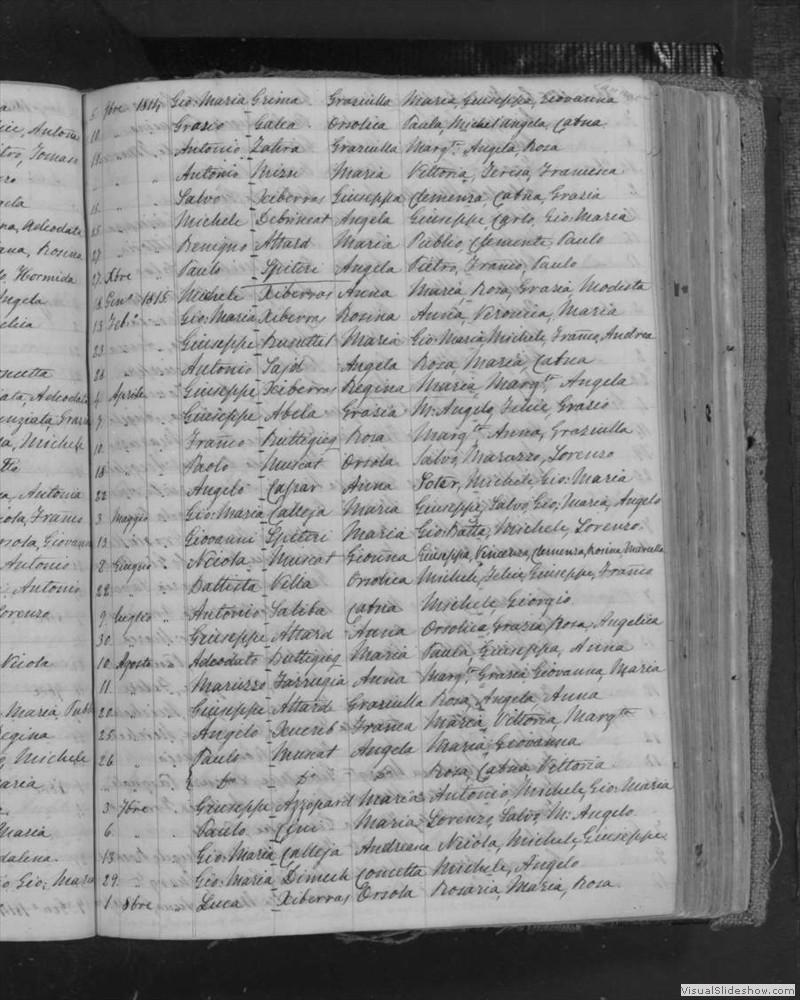 a
lice, Antonio
etro, Tomaso
ro
gela
na, Adeodata
ana, Rosina
Hormida
Angela
elica
oncetta
iata, Adeodata
enziata, Grazia
a, Michele
a, Antonia
icola, Franco
rsola, Giovanna
Antonio
Antonio
Lorenzo
Nicola
Maria, Publ
Regina
Michele
aria
Maria
dalena
io, Gio: Maria
5 9bre 1814 Gio: Maria Grima Graziulla Maria, Giuseppa, Giovanna
10 " " Grazio Galea Orsolica Paula, Michel'angela, Catna
" " Antonio Zahra Graziulla Margta Angela, Rosa
" " " Antonio Mizzi Maria Vittoria, Teresa, Francesca
" " Salvo Xiberras Giuseppa Clemenza, Catna, Grazia
25 " " Michele Debrincat Angela Giuseppe, Carlo, Gio: Maria
27 " " Benigno Attard Maria Publio, Clemente, Paulo
27 Xbre " Paulo Spiteri Angela Pietro, Franco, Paulo
Genn 1815 Michele Xiberras Anna Maria, Rosa, Grazia Modesta
13 Feb " Gio: Maria Xiberras Rosina Anna, Veronica, Maria
23 " " Giuseppe Busuttil Maria Gio: Maria, Michele, Franco, Andrea
28 " " Antonio Sajd Angela Rosa, Maria, Catna
4 Aprile " Giuseppe Xiberras Regina Maria, Margta Angela
7 " " Giuseppe Abela Grazia M: Angelo, Felice, Grazio
10 " " Franco Buttigieg Rosa Margta Anna, Graziulla
18 " " Paolo Muscat Orsola Salvo, Marazzo, Lorenzo
22 " " Angelo Caspar Anna Soter, Michele, Gio: Maria
3 Maggio " Gio: Maria Calleja Maria Giuseppe, Salvo, Gio: Maria, Angelo
13 " " Giovanni Spiteri Maria Gio: Batta, Michele, Lorenzo
8 Giugno " Nicola Muscat Gionna Giuseppa, Vincenza, Clemenza, Rosina, Marcella
22 " " Battista Villa Orsolica Michele, Felice, Giuseppe, Franco
9 Luglio " Antonio Saliba Catna Michele, Giorgio
30 " " Giuseppe Attard Anna Orsolica, Grazia, Rosa, Angelica
10 Agosto " Adeodato Buttigieg Maria Paula, Giuseppa, Anna
11 " " Maruzzo Farrugia Anna Margta Grazia Giovanna, Maria
20 " " Giuseppe Attard Graziulla Rosa, Angela, Anna
25 " " Angelo Xuereb Franca Maria, Vittoria, Margta
26 " " Paulo Muscat Angela Maria, Giovanna
" " " Do Do Do Rosa, Catna Vittoria
3 7bre " Giuseppe Azzopard Maria Antonio, Michele, Gio: Maria
6 " " Paulo Cini Maria Lorenzo, Salvo, M: Angelo
13 " " Gio: Maria Calleja Andreana Nicola, Michele, Giuseppe
29 " " Gio: Maria Dimech Concetta Michele, Angelo
1 8bre " Luca Xiberras Orsola Rosaria, Maria, Rosa
VisualSlideshow.com